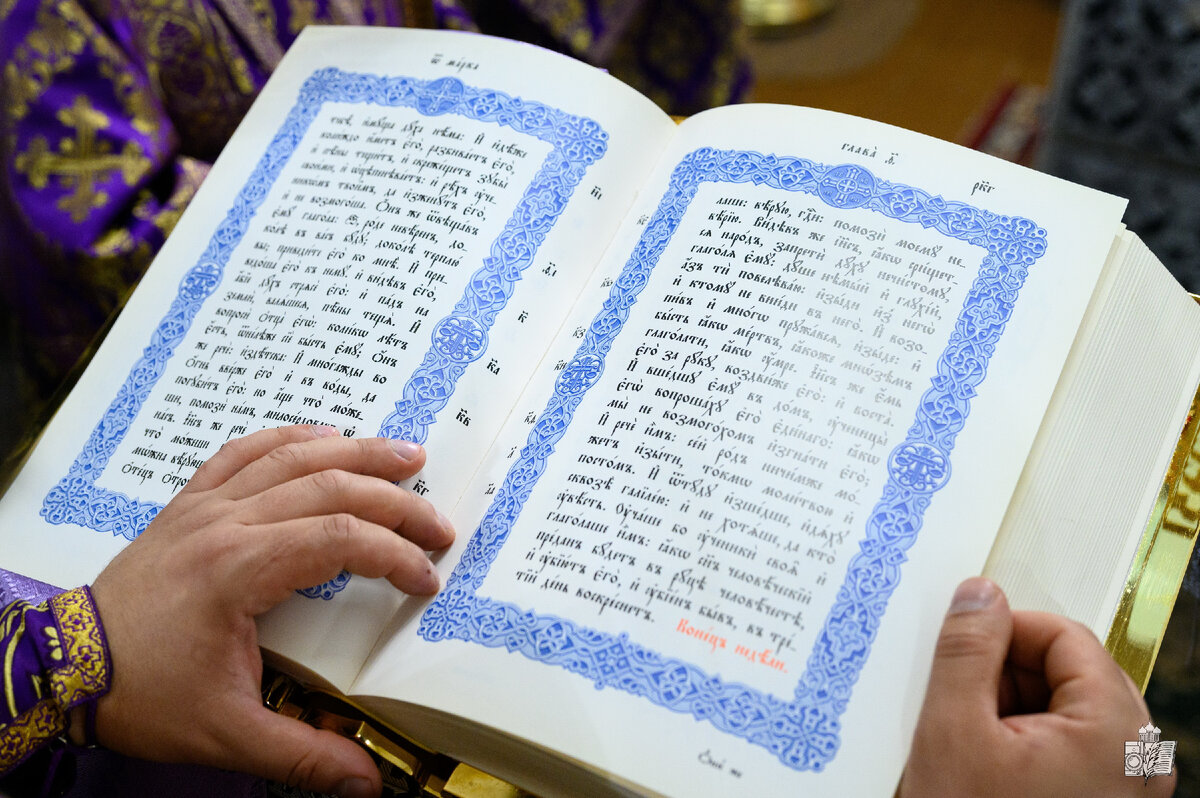 Ѿ ма́рка
тисѐ, и҆мꙋ́ща дꙋ́ха нѣ́ма: И҆ и҆дѣ́же
колиждо и҆́метъ є҆го̀, разбива́етъ є҆го̀,
и҆ пѣ́ны тещи́тъ, и҆ скрежещетъ зꙋбы̀
свои́ми, и҆ ѡ҆цѣпеневаетъ: и҆ рѣ́хъ ᲂу҆че-
никѡ́мъ твои҄мъ, да и҆зженꙋ́тъ є҆го̀,
и҆ не возмого́ша. Ѻ҆́нъ же ѿвѣща́въ
є҆мꙋ̀ глаго́ла: ѽ, ро́де невѣ́ренъ, до-
ко́лѣ въ ва́съ бꙋ́дꙋ; доко́лѣ терплю̀
вы̀; приведи́те є҆го̀ ко мнѣ̀. И҆ при-
ведо́ша є҆го̀ къ немꙋ̀: и҆ ви́дѣвъ є҆го̀,
а҆́бїе дꙋ́хъ стрѧсѐ є҆го̀: и҆ па́дъ на
землѝ, валѧ́шесѧ, пѣ́ны тещѧ̀. И҆
вопросѝ ѻ҆тца̀ є҆гѡ̀: коли́кѡ лѣ́тъ
є҆́сть, ѿне́лѣже сїѐ бы́сть є҆мꙋ̀; Ѻ҆́нъ
же речѐ: и҆здѣ́тска: И҆ мно́гажды во
ѻ҆́гнь вве́рже є҆го̀ и҆ въ во́ды, да
погꙋби́тъ є҆го̀: но а҆́ще что̀ мо́же-
ши, помозѝ на́мъ, милосе́рдовавъ
на́съ. І҆и҃съ же речѐ
что̀ мо́жеши
мѡ́жна вѣ́рꙋющ
Ѻ҆те́цъ ѻ҆троч
и҃і
ѳ҃і
к҃
к҃а
к҃в
к҃г
глава̀ ѳ҃
рк҃г
лаше: вѣ́рꙋю, гдⷭ҇и: помозѝ моемꙋ̀ не-
вѣ́рїю. Ви́дѣвъ же і҆и҃съ, ꙗ҆́кѡ срищетъ-
сѧ наро́дъ, запретѝ дꙋ́хꙋ нечи́стомꙋ,
глаго́лѧ є҆мꙋ̀: дꙋ́ше нѣмы́й и҆ глꙋхі́й,
а҆́зъ тѝ повелѣва́ю: и҆зы́ди и҆з̾ негѡ̀
и҆ ктомꙋ̀ не вни́ди въ него̀. И҆ возо-
пи́въ и҆ мно́гѡ прꙋжа́всѧ, и҆зы́де: и҆
бы́сть ꙗ҆́кѡ ме́ртвъ, ꙗ҆́коже мнѡ́зѣмъ
глаго́лати, ꙗ҆́кѡ ᲂу҆́мре. І҆и҃съ же є҆́мь
є҆го̀ за рꙋ́кꙋ, воздви́же є҆го̀: и҆ воста̀.
И҆ вше́дшꙋ є҆мꙋ̀ въ до́мъ, ᲂу҆ченицы̀
є҆гѡ̀ вопроша́хꙋ є҆го̀ є҆ди́наго: ꙗ҆́кѡ
мы̀ не возмого́хомъ и҆згна́ти є҆го̀;
И҆ речѐ и҆̀мъ: се́й ро́дъ ничи́мже мо́-
жетъ и҆зы́ти, то́кмѡ моли́твою и҆
посто́мъ. И҆ ѿтꙋ́дꙋ и҆зше́дше, и҆дѧ́хꙋ
сквозѣ̀ галїле́ю: и҆ не хотѧ́ше, да кто̀
ᲂу҆вѣ́сть. Оу҆ча́ше бо ᲂу҆ченикѝ своѧ҄ и҆
глаго́лаше и҆̀мъ: ꙗ҆́кѡ сн҃ъ человѣ́ческїй
пре́данъ бꙋ́детъ въ рꙋ́цѣ человѣ́чєстѣ,
и҆ ᲂу҆бїю́тъ є҆го̀, и҆ ᲂу҆бїе́нъ бы́въ, въ тре́-
тїй де́нь воскре́снетъ.
Коне́цъ недѣ́ли.
Сїѐ же